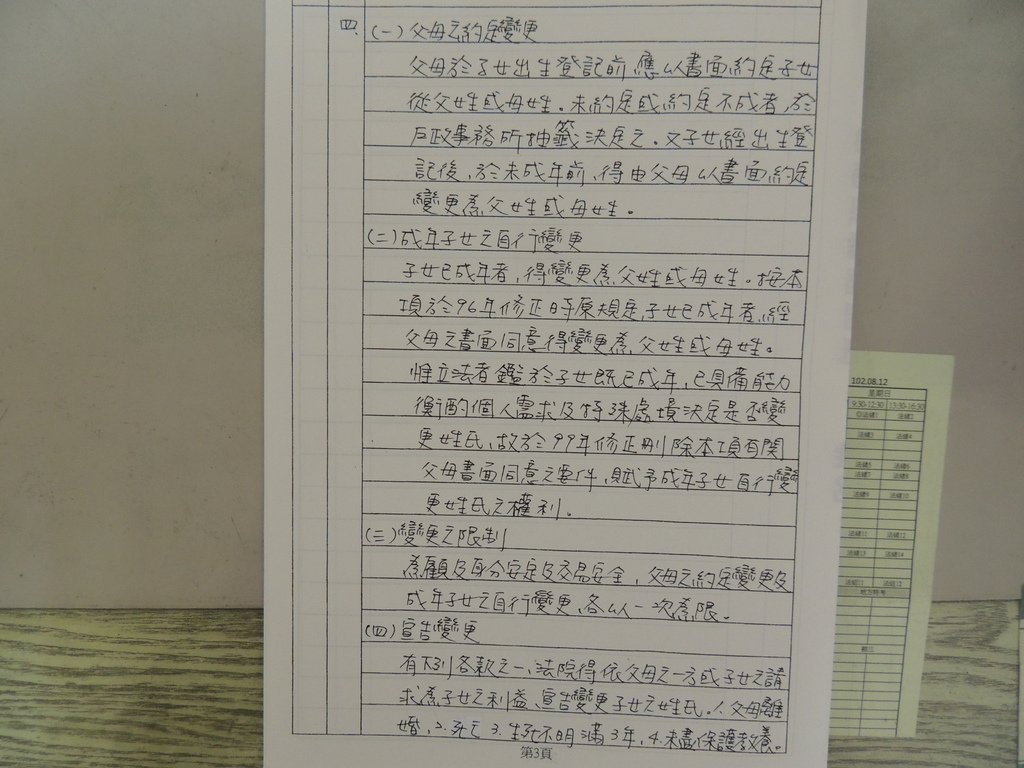 四、(一)父母之約定變更
父母於子女出生登記前,應以書面約定子女
從父姓或母姓。未約定或約定不成者,於
戶政事務所抽籤決定之。又子女經出生登
記後,於未成年前,得由父母以書面約定
變更為父姓或母姓。
(二)成年子女之自行變更
子女已成年者,得變更為父姓或母姓。按本
項於96年修正時原規定,子女已成年者,經
父母之書面同意得變更為父姓或母姓。
惟立法者鑑於子女既已成年,已具備能力
衡酌個人需求及特殊處境決定是否變
更姓氏,故於99年修正刪除本項有關
父母書面同意之要件,賦予成年子女自行變
更姓氏之權利。
(三)變更之限制
為顧及身分安定及交易安全,父母之約定變更及
成年子女之自行變更,各以一次為限。
(四)宣告變更
有下列各款之一,法院得依父母之一方或子女之請
求為子女之利益,宣告變更子女之姓氏。1.父母離
婚,2.死亡 3.生死不明滿3年,4.未盡保護教養。
第3頁
102.08.12
星期日
9:30-12:30 13:30-16:30
地方特考